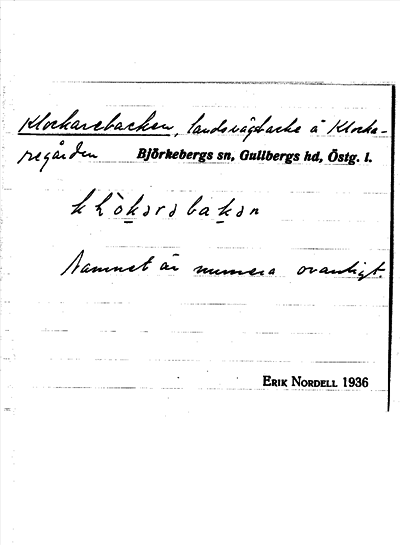 Klockarebacken, landsvägsbacke å Klocka-
regården Björkebergs sn, Gullbergs hd, Östg. l.
Namnet är numera ovanligt.
ERIK NORDELL 1936